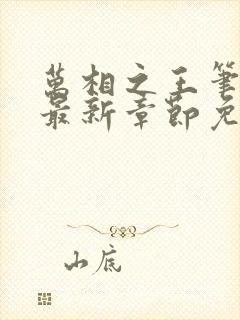 萬相之王筆
最新章節免
山底